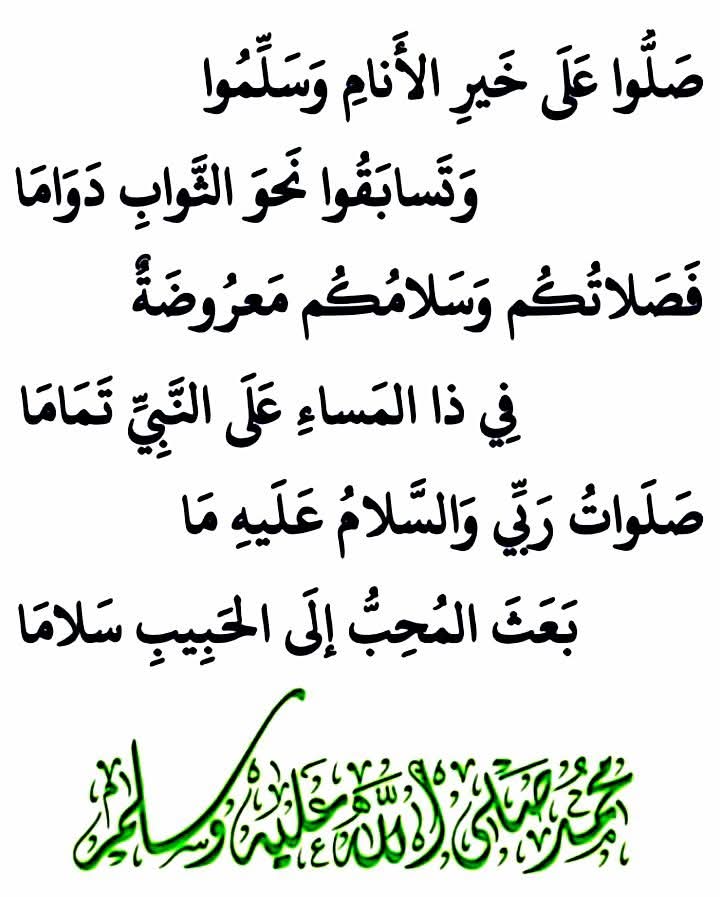 صَلُّوا عَلَى خَيرِ الأَنامِ وَسَلِّمُوا
وَتَسابَقُوا نَحوَ الثَّوابِ دَوَامَا
فَصَلاتُكُم وَسَلامُكُم مَعرُوضَةٌ
فِي ذا المَساءِ عَلَى النَّبِيِّ تَمَامَا
صَلَواتُ رَبِّي وَالسَّلامُ عَلَيهِ مَا
بَعَثَ المُحِبُّ إلَى الحَبِيبِ سَلامَا
محمد صلى الله عليه وسلم